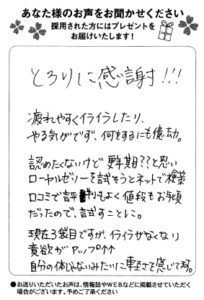 あなた様のお声をお聞かせください
採用された方にはプレゼントを
お届けいたします！
とろりに感謝!!!
疲れやすくイライラしたり、
やる気がでず、何をするにも億劫。
認めたくないけど更年期??と思い
ローヤルゼリーを試そうとネットで検索
口コミで評判もよく値段もお手頃
だったので、試すことに。
現在3袋目ですが、イライラがなくなり
意欲がアップ↑↑↑
自分の体じゃないみたいに軽さを感じてます。
●お送りいただいたお声は、情報誌やWEBなどに掲載させていただく
場合がございます。予めご了承ください。